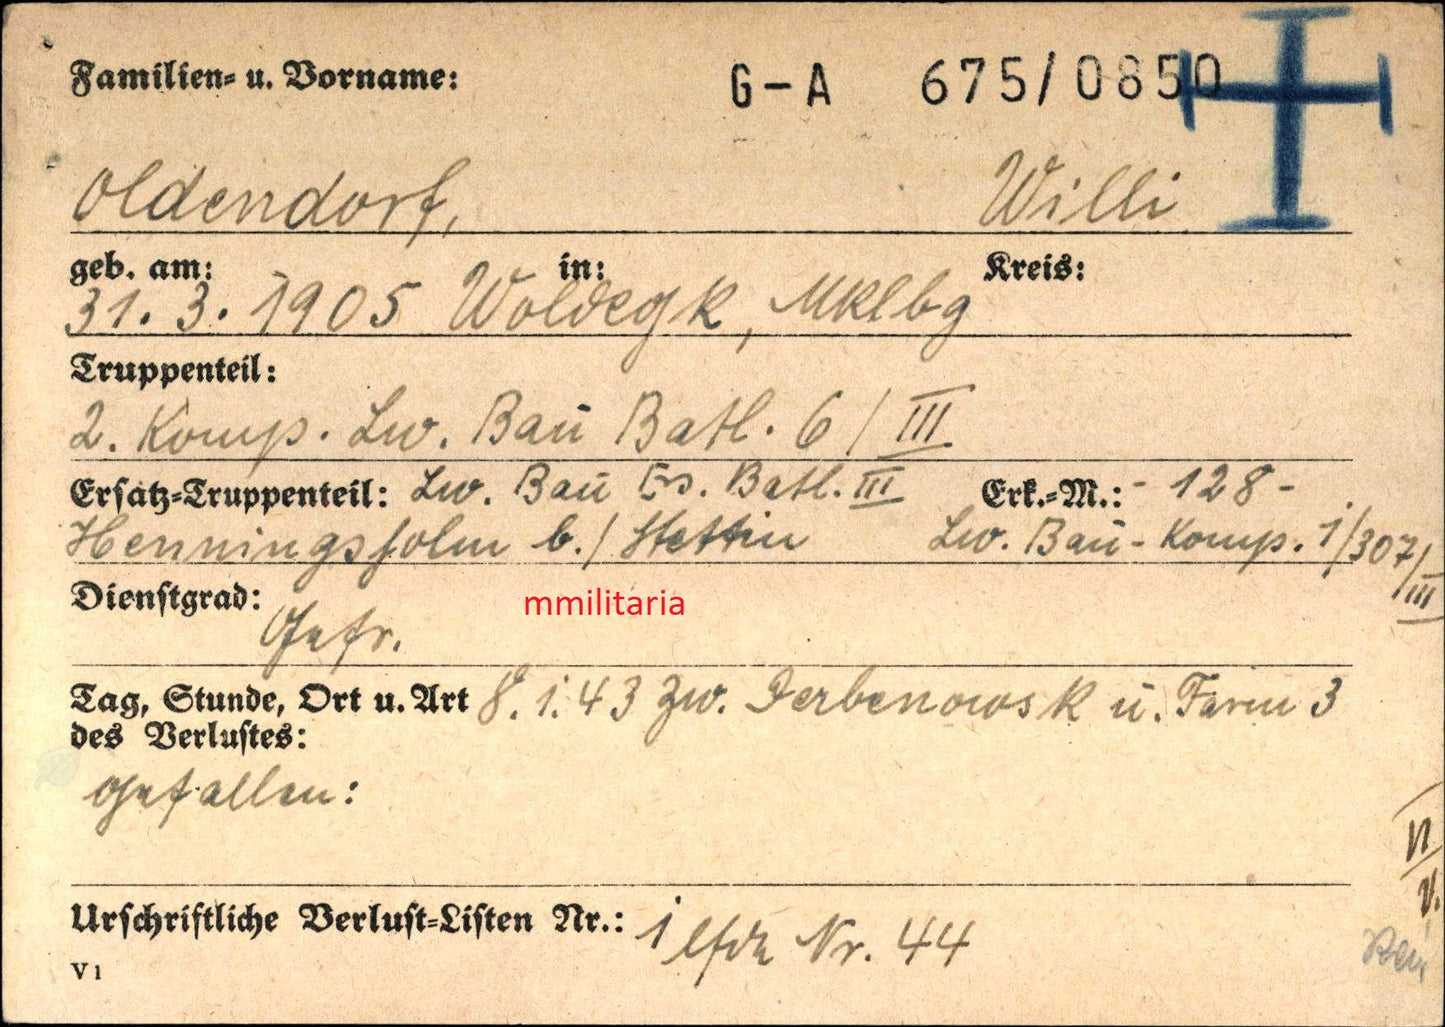 Familien- u. Vorname:
G-A 675/0850
Oldendorf, Willi
geb. am: in: Kreis:
31. 3. 1905 Woldegk, Mklbg
Truppenteil:
2. Komp. Lw. Bau Batl. 6/III
Ersatz-Truppenteil: Lw. Bau Ers. Batl. III Erk.-M.: -128-
Henningsholm b./Stettin Lw. Bau-Komp. 1/307/III
Dienstgrad:
Gefr.
mmilitaria
Tag, Stunde, Ort u. Art 8.1.43 zw. Derbenowsk u. Farm 3
des Verlustes:
gefallen:
Urschriftliche Verlust-Listen Nr.: 1 lfde Nr. 44
V 1